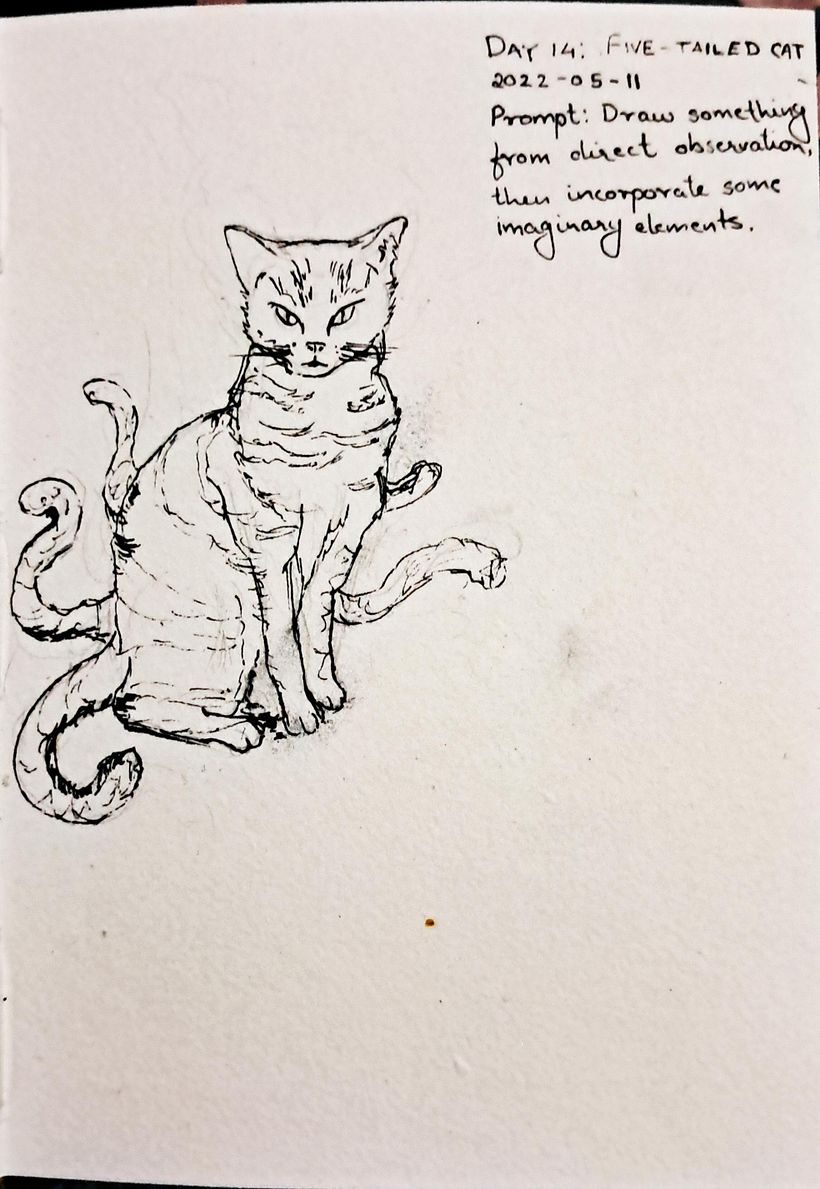 DAY 14: FIVE-TAILED CAT
2022-05-11
Prompt: Draw something
from direct observation,
then incorporate some
imaginary elements.